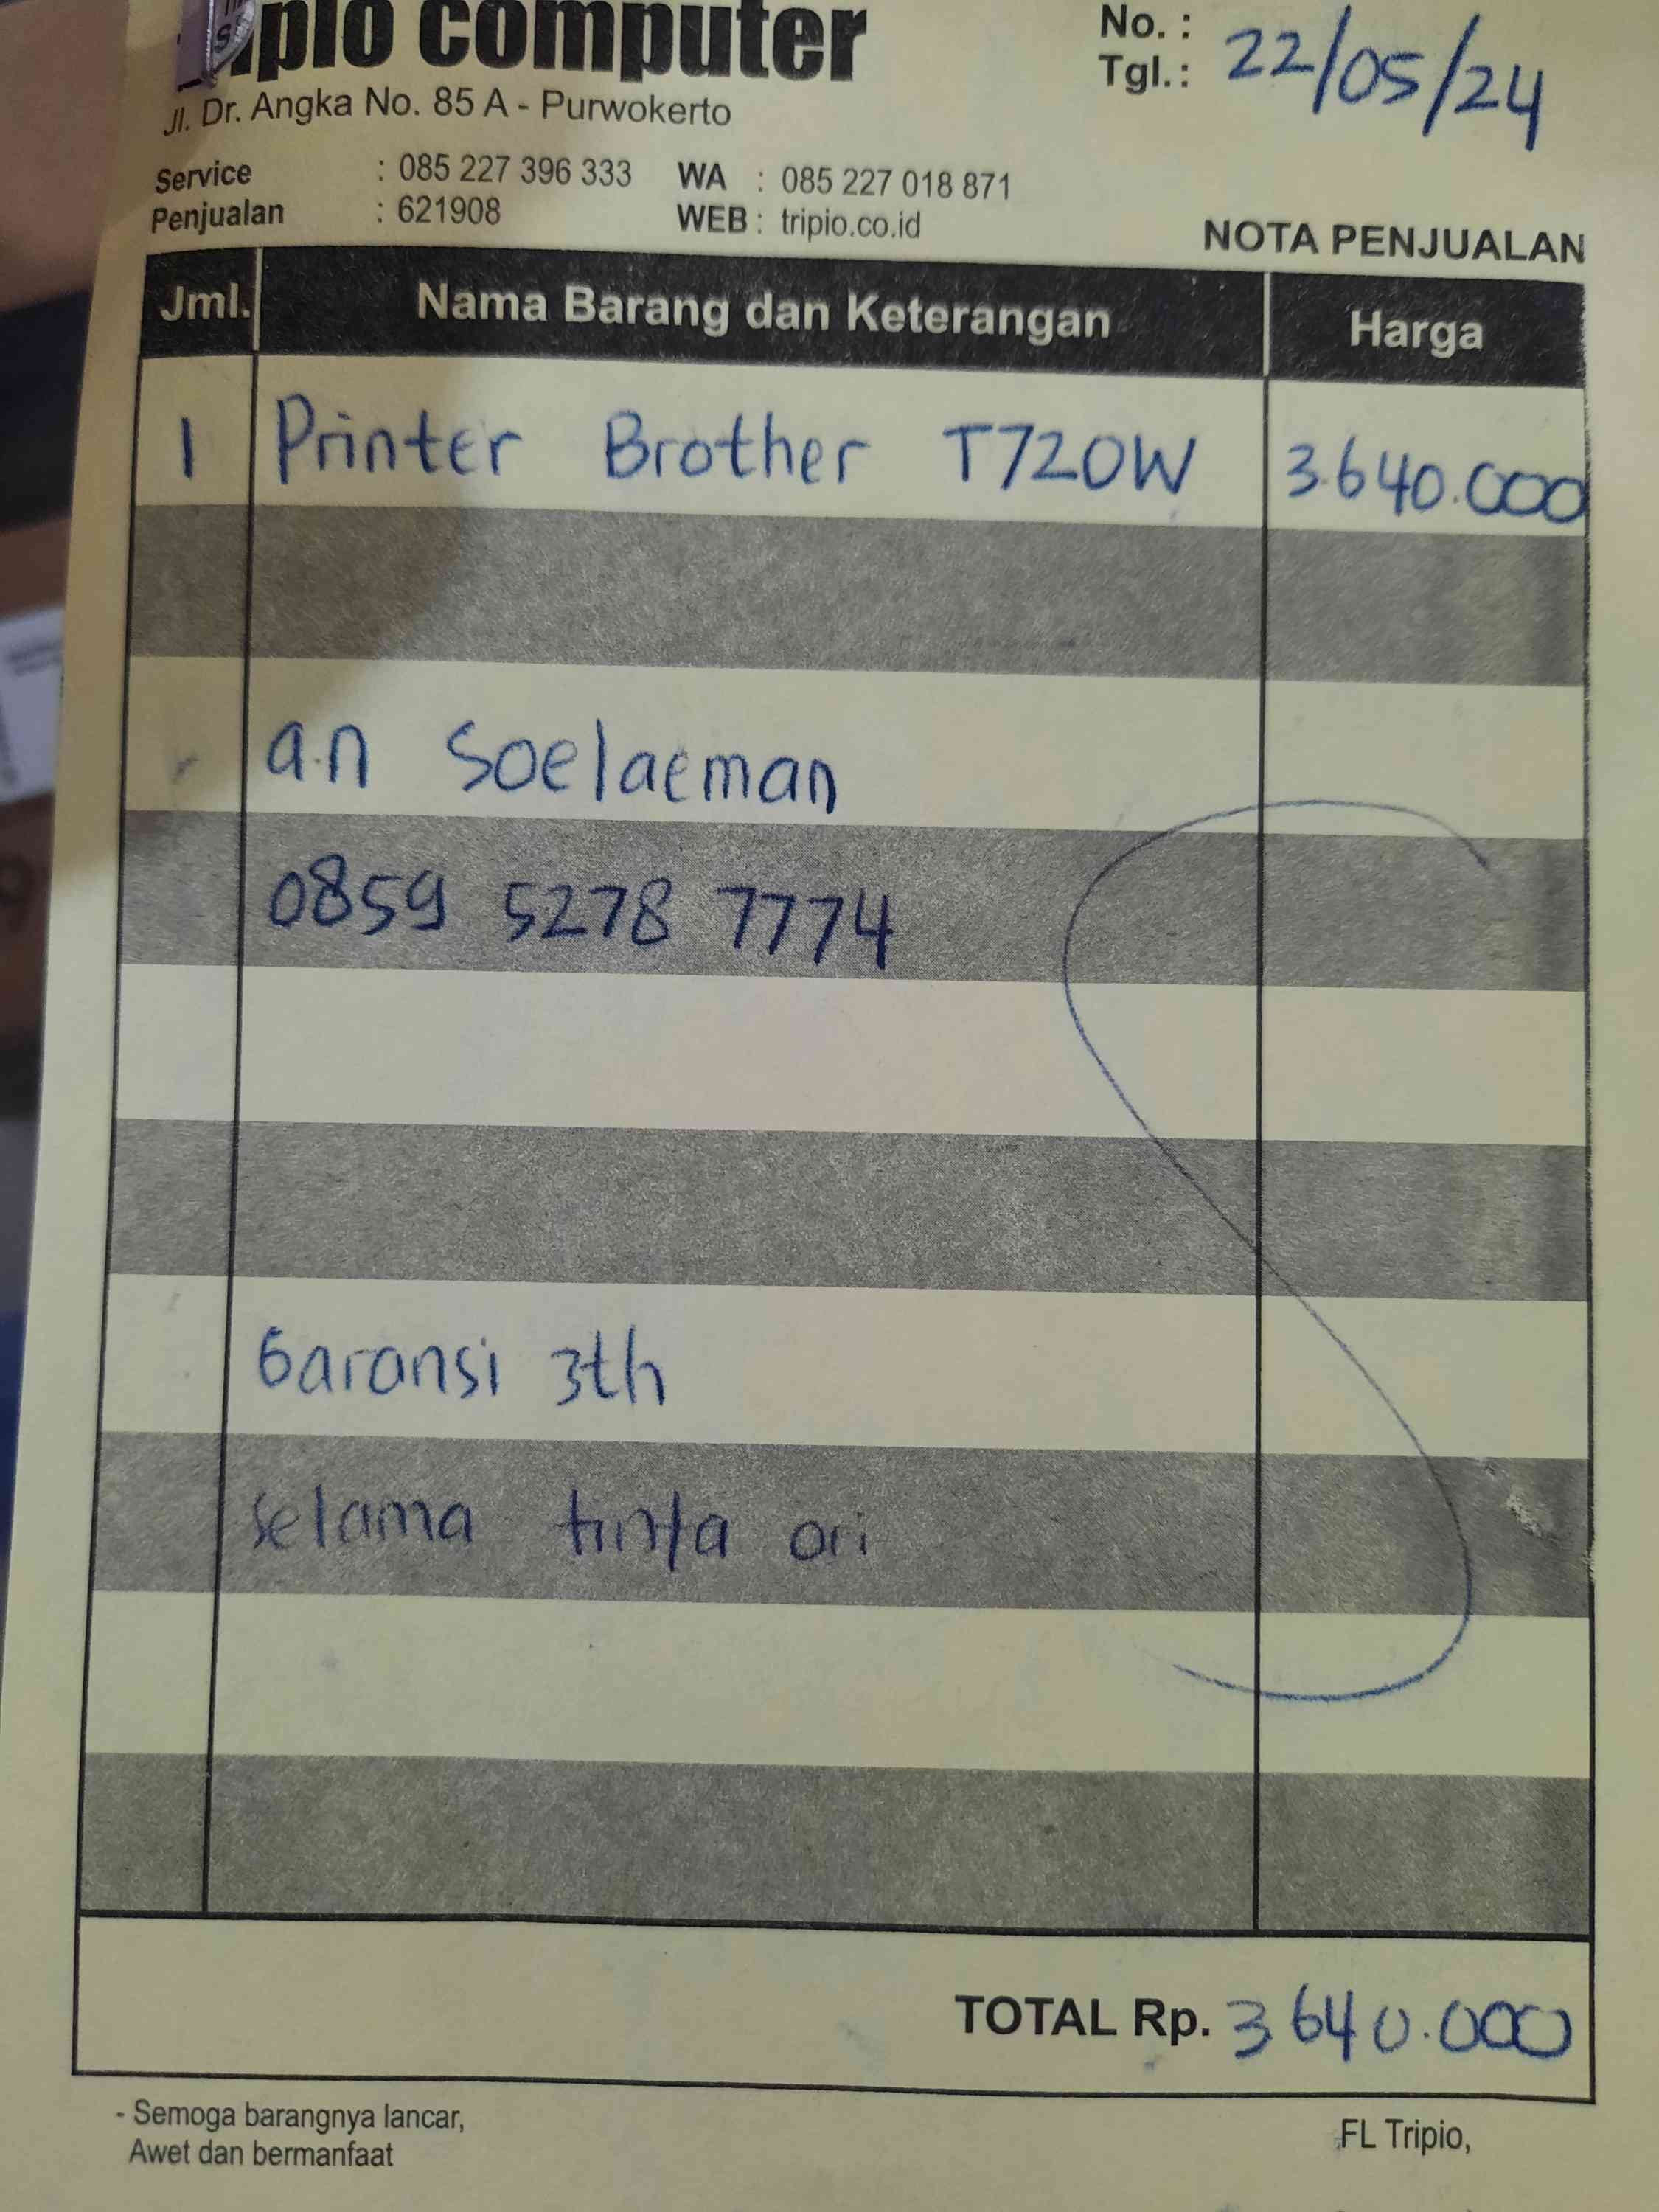 tripio computer
Jl. Dr. Angka No. 85 A - Purwokerto
No. :
Tgl. : 22/05/24
Service : 085 227 396 333 WA : 085 227 018 871
Penjualan : 621908 WEB : tripio.co.id
NOTA PENJUALAN
Jml. Nama Barang dan Keterangan Harga
1 Printer Brother T720W 3.640.000
a.n Soelaeman
0859 5278 7774
Garansi 3th
selama tinta ori
TOTAL Rp. 3.640.000
- Semoga barangnya lancar,
Awet dan bermanfaat
FL Tripio,